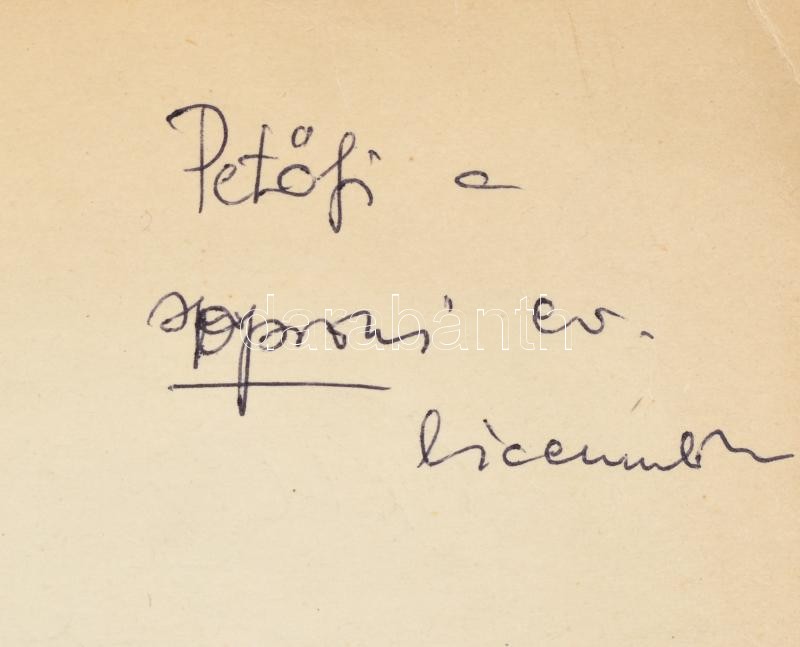 Petőfi a
soproni ev.
liceumban
darabanth